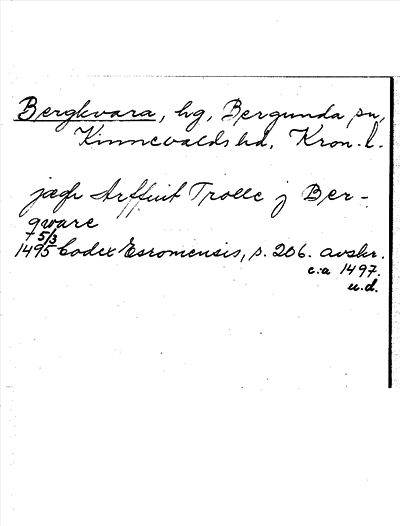 Bergkvara, hg, Bergunda sn,
Kinnevalds hd, Kron. l.
jægh Arffuit Trolle j Ber-
qware
+ 5/3
1495 Codex Esromensis, s. 206. avskr.
c:a 1497.
u.d.